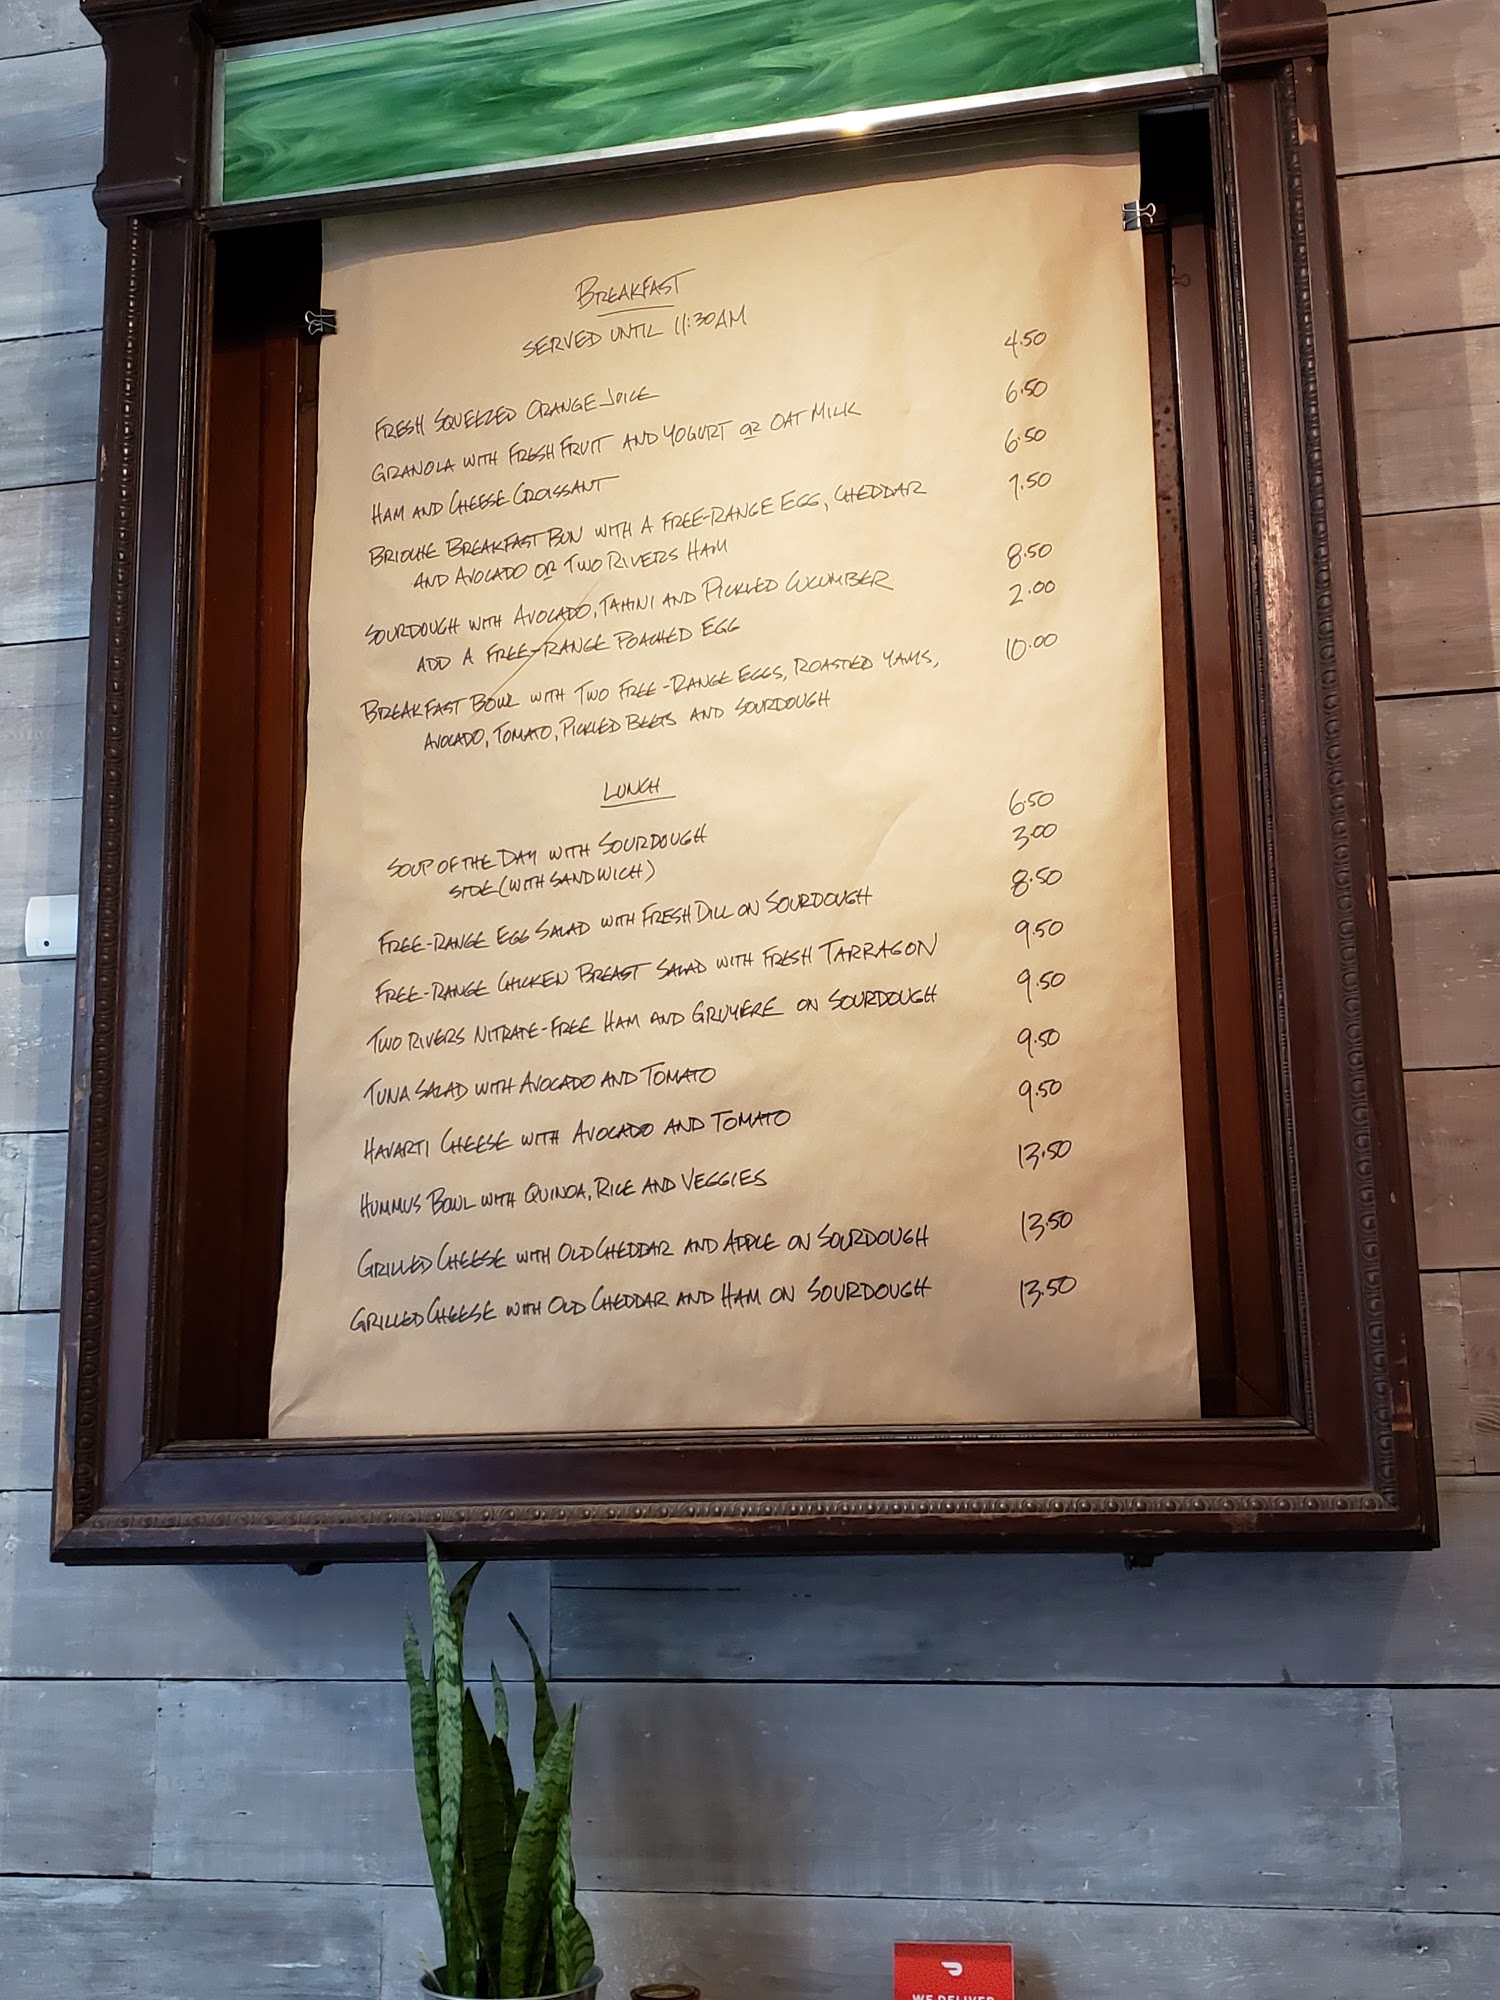 BREAKFAST
SERVED UNTIL 11:30AM
FRESH SQUEEZED ORANGE JUICE 4.50
GRANOLA WITH FRESH FRUIT AND YOGURT OR OAT MILK 6.50
HAM AND CHEESE CROISSANT 6.50
BRIOCHE BREAKFAST BUN WITH A FREE-RANGE EGG, CHEDDAR 7.50
AND AVOCADO OR TWO RIVERS HAM
SOURDOUGH WITH AVOCADO, TAHINI AND PICKLED CUCUMBER 8.50
ADD A FREE-RANGE POACHED EGG 2.00
BREAKFAST BOWL WITH TWO FREE-RANGE EGGS, ROASTED YAMS, 10.00
AVOCADO, TOMATO, PICKLED BEETS AND SOURDOUGH
LUNCH
SOUP OF THE DAY WITH SOURDOUGH 6.50
SIDE (WITH SANDWICH) 3.00
FREE-RANGE EGG SALAD WITH FRESH DILL ON SOURDOUGH 8.50
FREE-RANGE CHICKEN BREAST SALAD WITH FRESH TARRAGON 9.50
TWO RIVERS NITRATE-FREE HAM AND GRUYERE ON SOURDOUGH 9.50
TUNA SALAD WITH AVOCADO AND TOMATO 9.50
HAVARTI CHEESE WITH AVOCADO AND TOMATO 9.50
HUMMUS BOWL WITH QUINOA, RICE AND VEGGIES 13.50
GRILLED CHEESE WITH OLD CHEDDAR AND APPLE ON SOURDOUGH 13.50
GRILLED CHEESE WITH OLD CHEDDAR AND HAM ON SOURDOUGH 13.50
WE DELIVER